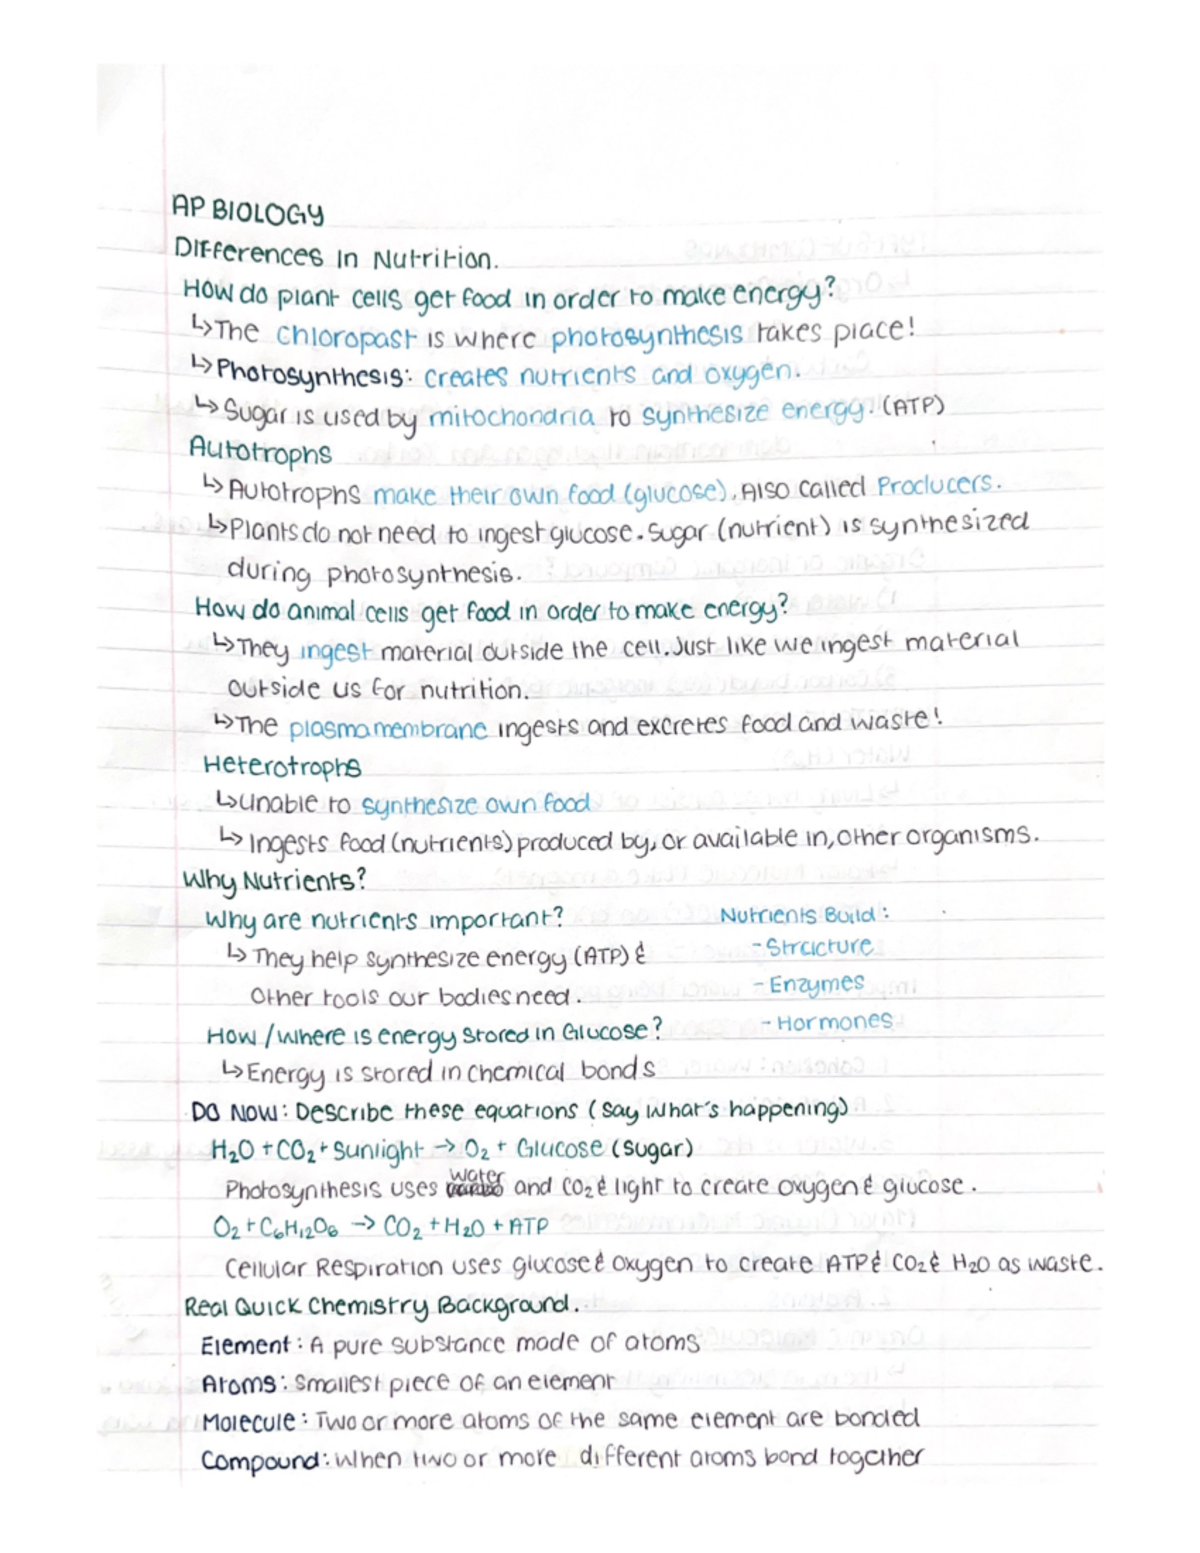 AP BIOLOGY
Differences In Nutrition.
How do plant cells get food in order to make energy?
↳The chloropast is where photosynthesis takes place!
↳Photosynthesis: creates nutrients and oxygen.
↳Sugar is used by mitochondria to synthesize energy. (ATP)
Autotrophs
↳Autotrophs make their own food (glucose). Also called Producers.
↳Plants do not need to ingest glucose. Sugar (nutrient) is synthesized
during photosynthesis.
How do animal cells get food in order to make energy?
↳They ingest material outside the cell. Just like we ingest material
outside us for nutrition.
↳The plasma membrane ingests and excretes food and waste!
Heterotrophs
↳Unable to synthesize own food
↳Ingests food (nutrients) produced by, or available in, other organisms.
Why Nutrients?
Why are nutrients important?
↳They help synthesize energy (ATP) &
Other tools our bodies need.
Nutrients Build:
- Structure
- Enzymes
- Hormones
How / Where is energy stored in Glucose?
↳Energy is stored in chemical bonds
DO NOW: Describe these equations (say what's happening)
H₂O + CO₂ + Sunlight -> O₂ + Glucose (Sugar)
Photosynthesis uses water and CO₂ & light to create oxygen & glucose.
O₂ + C₆H₁₂O₆ -> CO₂ + H₂O + ATP
Cellular Respiration uses glucose & oxygen to create ATP & CO₂ & H₂O as waste.
Real Quick Chemistry Background.
Element: A pure substance made of atoms
Atoms: Smallest piece of an element
Molecule: Two or more atoms of the same element are bonded
Compound: When two or more different atoms bond togather